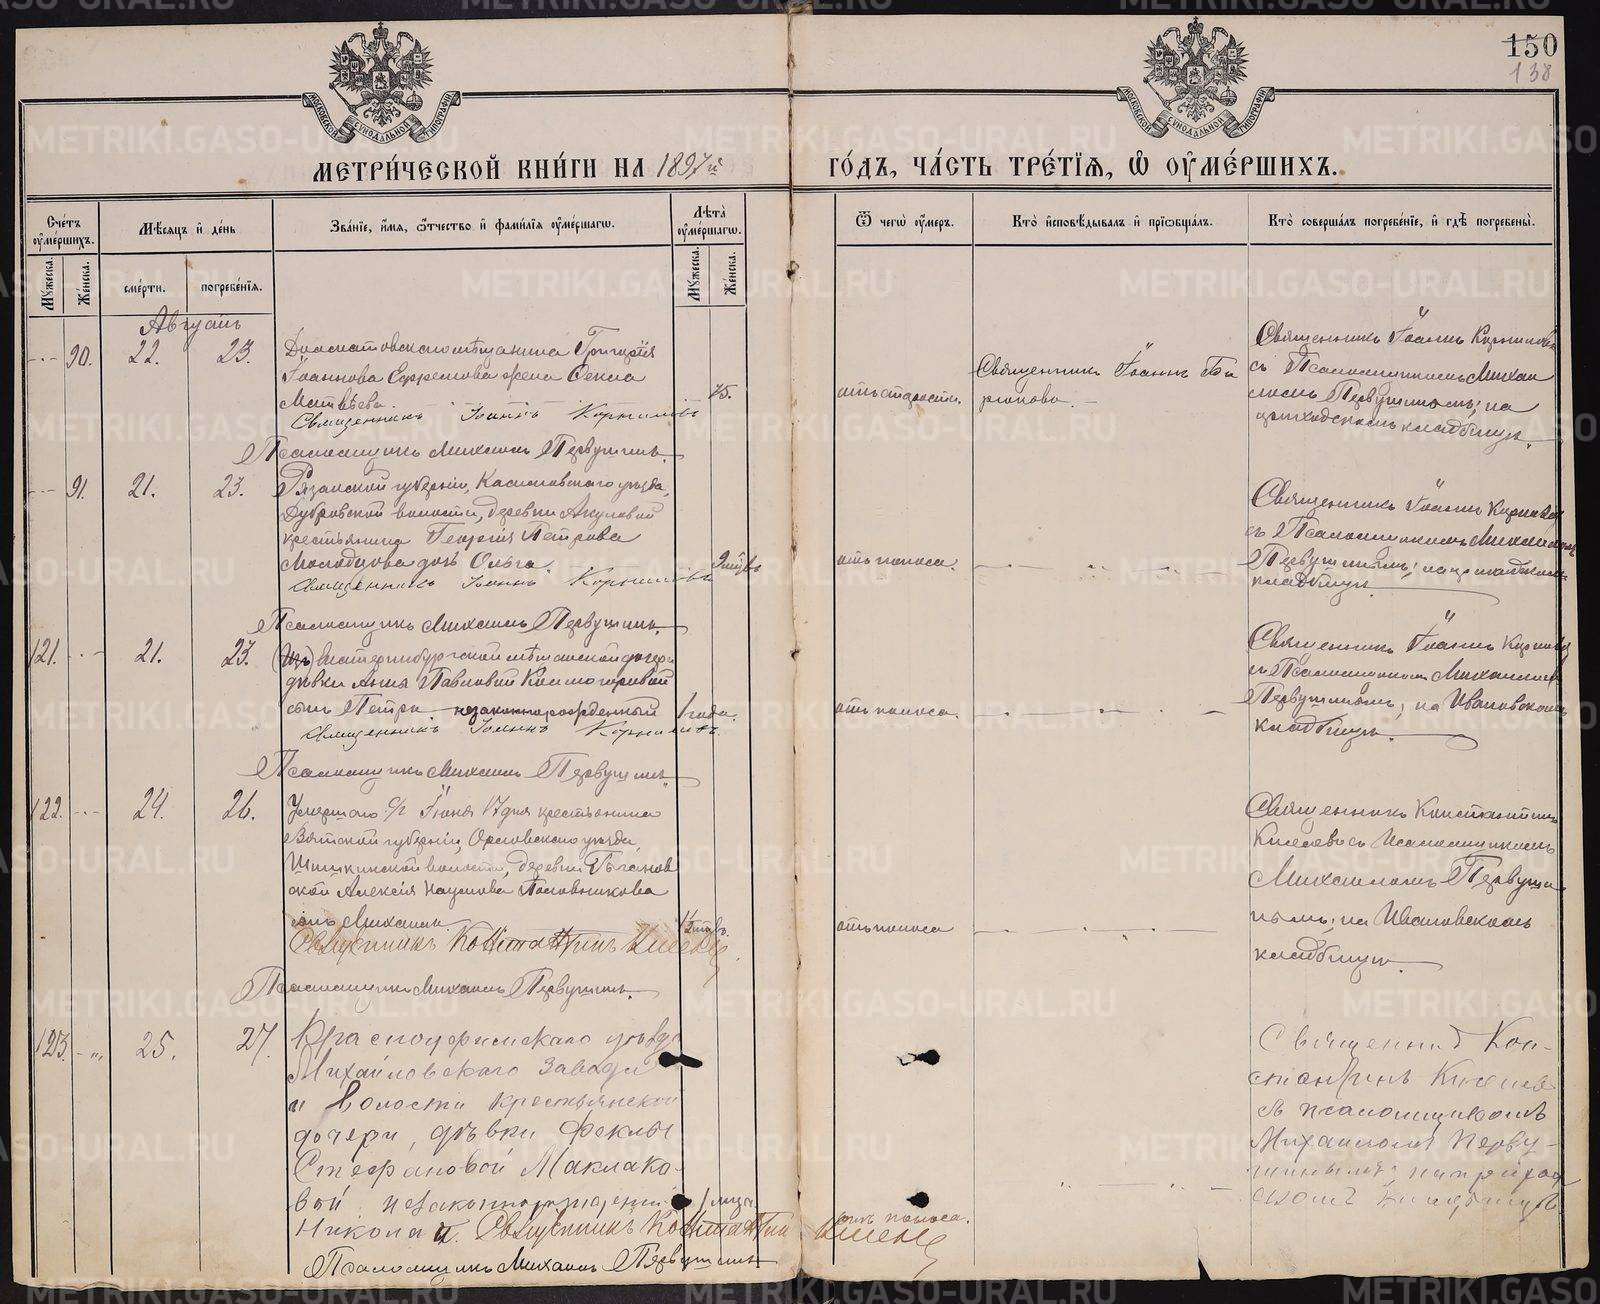 150
138
МОСКОВСКОЙ СѴНОДАЛЬНОЙ ТИПОГРАФІИ
МОСКОВСКОЙ СѴНОДАЛЬНОЙ ТИПОГРАФІИ
МЕТРИ́ЧЕСКОЙ КНИ́ГИ НА 1897й ГО́ДЪ, ЧА́СТЬ ТРЕ́ТІѦ, Ѡ҆ ОУ҆МЕ́РШИХЪ.
Сче́тъ оу҆ме́ршихъ.
Мѣ́сѧцъ и҆ де́нь
Зва́нїе, и҆́мѧ, ѻ҆́тчество и҆ фами́лїѧ оу҆ме́ршагѡ.
Лѣ́та оу҆ме́ршагѡ.
Ѿ чегѡ̀ оу҆́меръ.
Кто̀ и҆сповѣ́дывалъ и҆ прїѡбща́лъ.
Кто̀ соверша́лъ погребе́нїе, и҆ гдѣ̀ погребены̀.
Мꙋ́жеска.
Же́нска.
сме́рти.
погребе́нїѧ.
Мꙋ́жеска.
Же́нска.
Августъ
90. 22. 23.
Долматовскаго мѣщанина Григорія
Іоаннова Ефремова жена Фекла
Матвѣева. 75.
Священникъ Іоаннъ Корниловъ
Псаломщикъ Михаилъ Первушинъ.
отъ старости.
Священникъ Іоаннъ
Священникъ Іоаннъ Корниловъ
съ Псаломщикомъ Михаи
ломъ Первушинымъ; на
приходскомъ кладбищѣ.
91. 21. 23.
Рязанской губерніи, Касимовскаго уѣзда,
Дубровской волости, деревни Акуловой
крестьянина Георгія Петрова
Молодцова дочь Ольга.
Священникъ Іоаннъ Корниловъ
Псаломщикъ Михаилъ Первушинъ.
отъ поноса.
Священникъ Іоаннъ Корниловъ
съ Псаломщикомъ Михаиломъ
Первушинымъ; на приходскомъ
кладбищѣ.
121. 21. 23.
Екатеринбургской мѣщанской дочери
дѣвки Анны Павловой Костогоровой
сынъ Петръ незаконнорожденный 1 года.
Священникъ Іоаннъ Корниловъ.
Псаломщикъ Михаилъ Первушинъ.
отъ поноса.
Священникъ Іоаннъ Корниловъ
съ Псаломщикомъ Михаиломъ
Первушинымъ; на Ивановскомъ
кладбищѣ.
122. 24. 26.
Умершаго Іюня 17 дня крестьянина
Вятской губерніи, Орловскаго уѣзда,
Шишкинской волости, деревни
Алексія Наумова Половникова
сынъ Михаилъ
Священникъ Константинъ Киселевъ
Псаломщикъ Михаилъ Первушинъ.
отъ поноса
Священникъ Константинъ
Киселевъ съ Псаломщикомъ
Михаиломъ Первуши
нымъ; на Ивановскомъ
кладбищѣ.
123. 25. 27.
Красноуфимскаго уѣзда
Михайловскаго Завода
и волости крестьянской
дочери, дѣвки Феклы
Стефановой Маклако-
вой незаконнорожденный
Николай. Священникъ Константинъ Киселевъ
отъ поноса.
Псаломщикъ Михаилъ Первушинъ
Священникъ Кон-
стантинъ Киселевъ
съ псаломщикомъ
Михаиломъ Перву-
шинымъ; на приход
скомъ кладбищѣ
METRIKI.GASO-URAL.RU